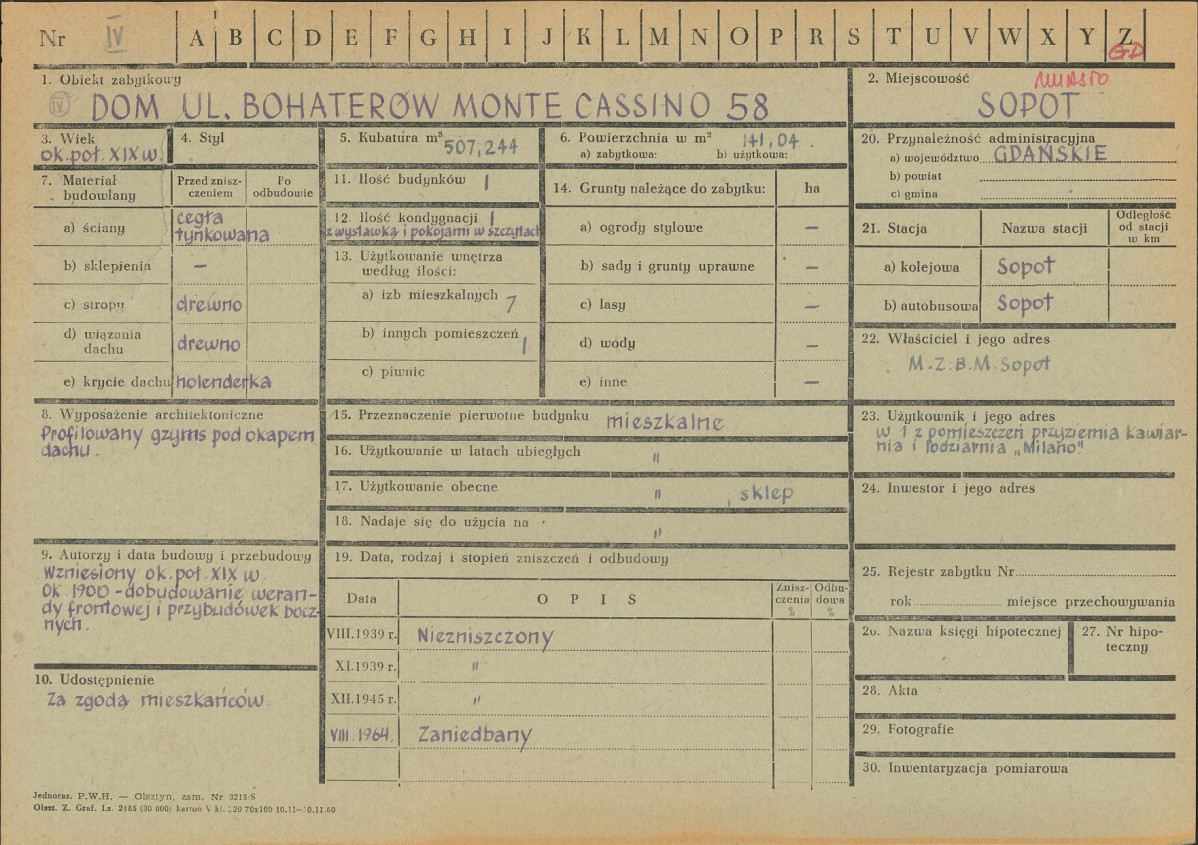 Nr IV A B C D E F G H I J K L M N O P R S T U V W X Y Z
GD
1. Obiekt zabytkowy
IV DOM UL. BOHATERÓW MONTE CASSINO 58
2. Miejscowość MIASTO
SOPOT
3. Wiek
ok. poł. XIX w.
4. Styl
5. Kubatura m³ 507,244
6. Powierzchnia w m² 141,04
a) zabytkowa: b) użytkowa:
7. Materiał budowlany
Przed zniszczeniem
Po odbudowie
a) ściany cegła tynkowana
b) sklepienia –
c) stropy drewno
d) wiązania dachu drewno
e) krycie dachu holenderka
8. Wyposażenie architektoniczne
Profilowany gzyms pod okapem
dachu.
9. Autorzy i data budowy i przebudowy
Wzniesiony ok. poł. XIX w.
Ok. 1900 – dobudowanie weran-
dy frontowej i przybudówek bocz-
nych.
10. Udostępnienie
Za zgodą mieszkańców
11. Ilość budynków 1
12. Ilość kondygnacji 1
z wystawką i pokojami w szczytach
13. Użytkowanie wnętrza
według ilości:
a) izb mieszkalnych 7
b) innych pomieszczeń 1
c) piwnic
14. Grunty należące do zabytku: ha
a) ogrody stylowe –
b) sady i grunty uprawne –
c) lasy –
d) wody –
e) inne –
15. Przeznaczenie pierwotne budynku mieszkalne
16. Użytkowanie w latach ubiegłych "
17. Użytkowanie obecne " , sklep
18. Nadaje się do użycia na "
19. Data, rodzaj i stopień zniszczeń i odbudowy
Data OPIS Zniszczenia % Odbudowa %
VIII.1939 r. Niezniszczony
XI.1939 r. "
XII.1945 r. "
VIII.1964. Zaniedbany
20. Przynależność administracyjna
a) województwo GDAŃSKIE
b) powiat
c) gmina
21. Stacja Nazwa stacji Odległość od stacji w km
a) kolejowa Sopot
b) autobusowa Sopot
22. Właściciel i jego adres
M.Z.B.M. Sopot
23. Użytkownik i jego adres
w 1 z pomieszczeń przyziemia kawiar-
nia i lodziarnia „Milano"
24. Inwestor i jego adres
25. Rejestr zabytku Nr
rok miejsce przechowywania
26. Nazwa księgi hipotecznej
27. Nr hipo-
teczny
28. Akta
29. Fotografie
30. Inwentaryzacja pomiarowa
Jednoraz. P.W.H. — Olsztyn, zam. Nr 3215/S
Olszt. Z. Graf. Lz. 2485 (30 000) karton V kl. 220 70x100 10.11—30.11.60